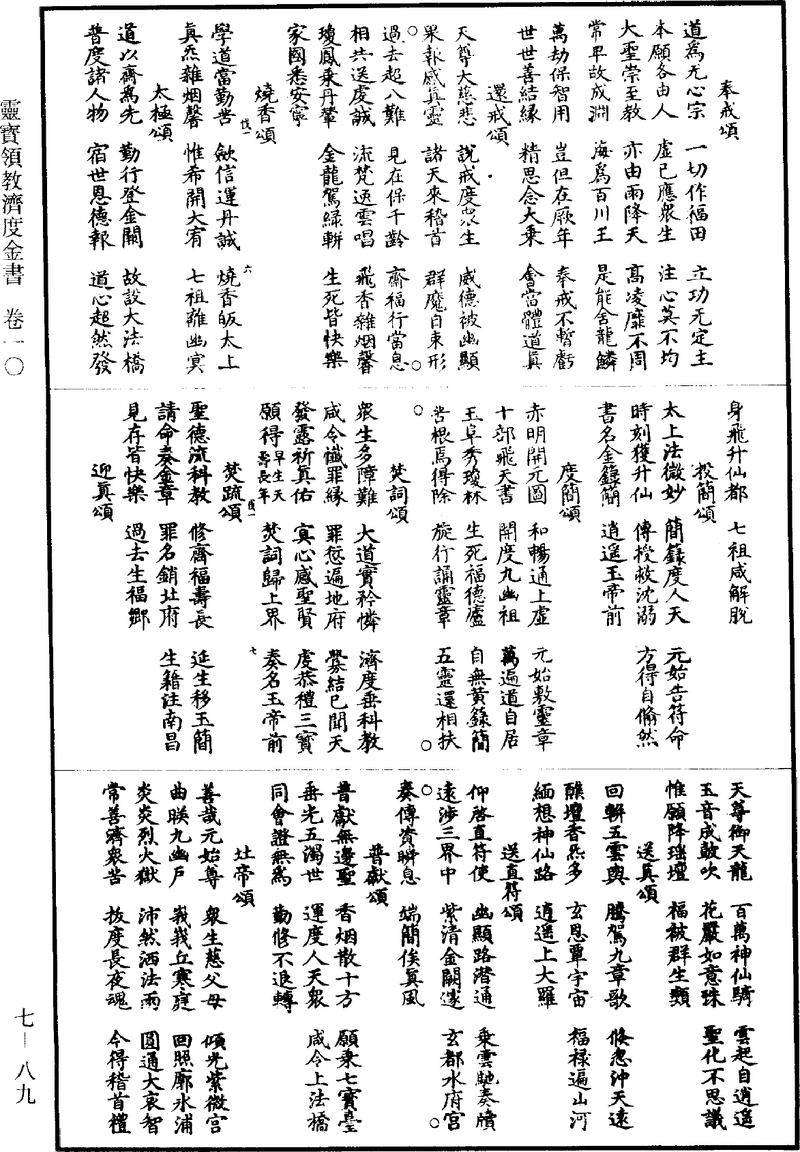 奉戒頌
道為无心宗　一切作福田　立功无定主
本願各由人　虛已應衆生　注心莫不均
大聖崇至教　亦由雨降天　高凌靡不周
常卑故成淵　海為百川王　是能舍龍鱗
萬劫保智用　豈但在厥年　奉戒不暫虧
世世善結緣　精思念大乗　會當體道真
還戒頌
天尊大慈悲　說戒度衆生　威德被幽顯
果報感真靈　諸天來稽首　群魔自束形
過去超八難　見在保千齡　齋福行當息
相共送虔誠　流梵送雲唱　飛香雜烟馨
瓊鳳乗丹輦　金龍駕緑軿　生死皆快樂
家國悉安寧
燒香頌
學道當勤苦　歛信運丹誠　燒香皈太上
真炁雜烟馨　惟希開大宥　七祖離幽冥
太極頌
道以齋為先　勤行登金闕　故設大法橋
普度諸人物　宿世恩德報　道心超然發
身飛升仙都　七祖咸解脫
投簡頌
太上法微妙　簡錄度人天　元始告符命
時刻獲升仙　傳授救沈溺　方得自翛然
書名金籙簡　逍遥玉帝前
度簡頌
赤明開元圖　和暢通上虛　元始敷靈章
十部飛天書　開度九幽祖　萬遍道自居
玉阜秀瓊林　生死福德廬　自無黃籙簡
苦根焉得除　旋行誦靈章　五靈還相扶
焚詞頌
衆生多障難　大道實矜憐　濟度垂科教
咸令懺罪緣　罪愆遍地府　釁結已聞天
發露祈真佑　冥心感聖賢　虔恭禮三寶
願得早生天壽長年　焚詞歸上界　奏名玉帝前
焚疏頌
聖德流科教　修齋福壽長　延生移玉簡
請命奏金章　罪名銷北府　生籍注南昌
見存皆快樂　過去生福鄉
迎真頌
天尊御天龍　百萬神仙騎　雲起自逍遥
玉音成鼓吹　花嚴如意珠　聖化不思議
惟願降瑶壇　福被群生類
送真頌
回軿五雲輿　騰駕九章歌　倏忽沖天遠
醮壇香炁多　玄恩覃宇宙　福祿遍山河
緬想神仙路　逍遥上大羅
送直符頌
仰啓直符使　幽顯路潜通　乗雲馳奏牘
遠涉三界中　紫清金闕邃　玄都水府宮
奏傳資瞬息　端簡俟真風
普獻頌
普獻無邊聖　香烟散十方　願乗七寶臺
垂光五濁世　運度人天衆　咸令上法橋
同會證無為　勤修不退轉
北帝頌
善哉元始尊　衆生慈父母　傾光紫微宮
曲映九幽戶　峩峩丘寒庭　回照廓氷浦
炎炎烈火獄　沛然洒法雨　圓通大哀智
常善濟衆苦　拔度長夜魂　今得稽首禮
靈寶領教濟度金書　卷一〇
七—八九